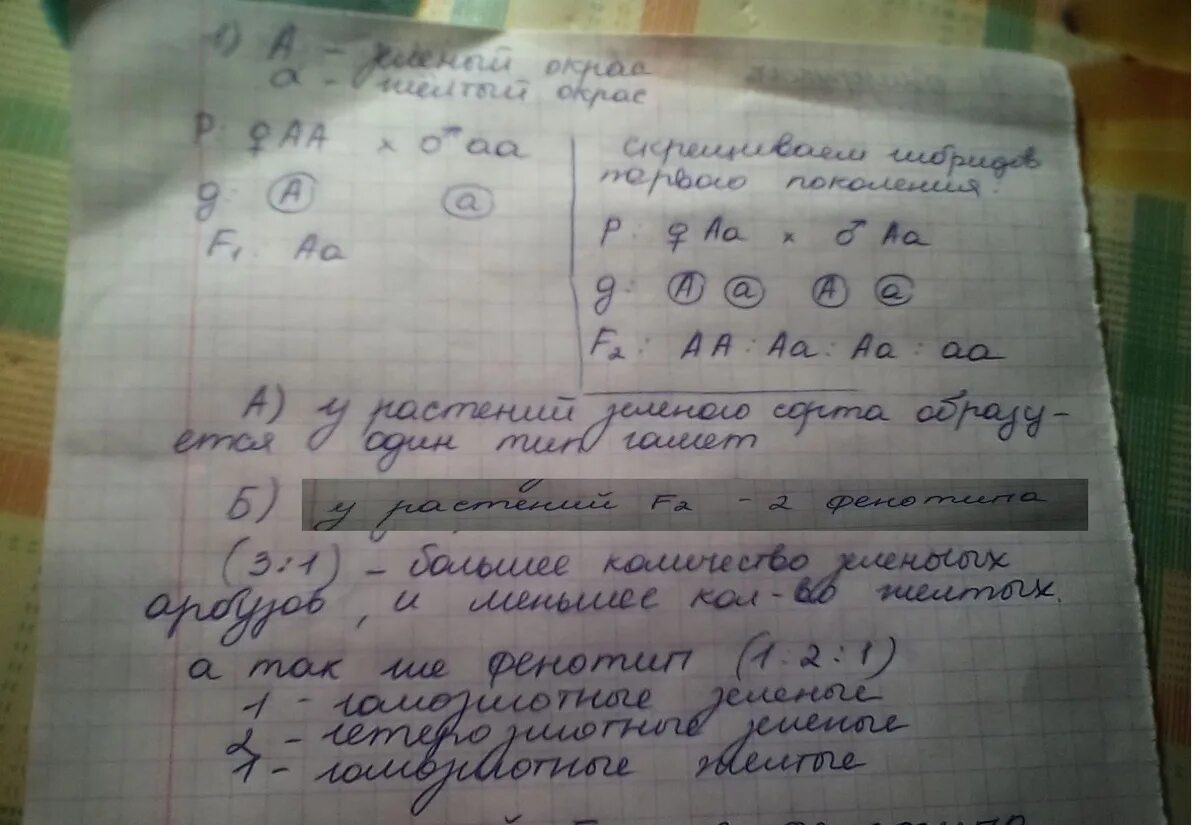 1) А - зеленый окрас
а - жёлтый окрас
P: ♀ АА × ♂ аа
g: А а
F₁: Аа
скрещиваем гибридов
первого поколения:
P: ♀ Аа × ♂ Аа
g: А а А а
F₂: АА : Аа : Аа : аа
А) у растений зеленого сорта образу-
ется один тип гамет
Б) у растений F₂ - 2 фенотипа
(3:1) - большее количество зеленых
арбузов, и меньшее кол-во желтых.
а так же фенотип (1:2:1)
1 - гомозиготные зеленые
2 - гетерозиготные зеленые
1 - гомозиготные желтые